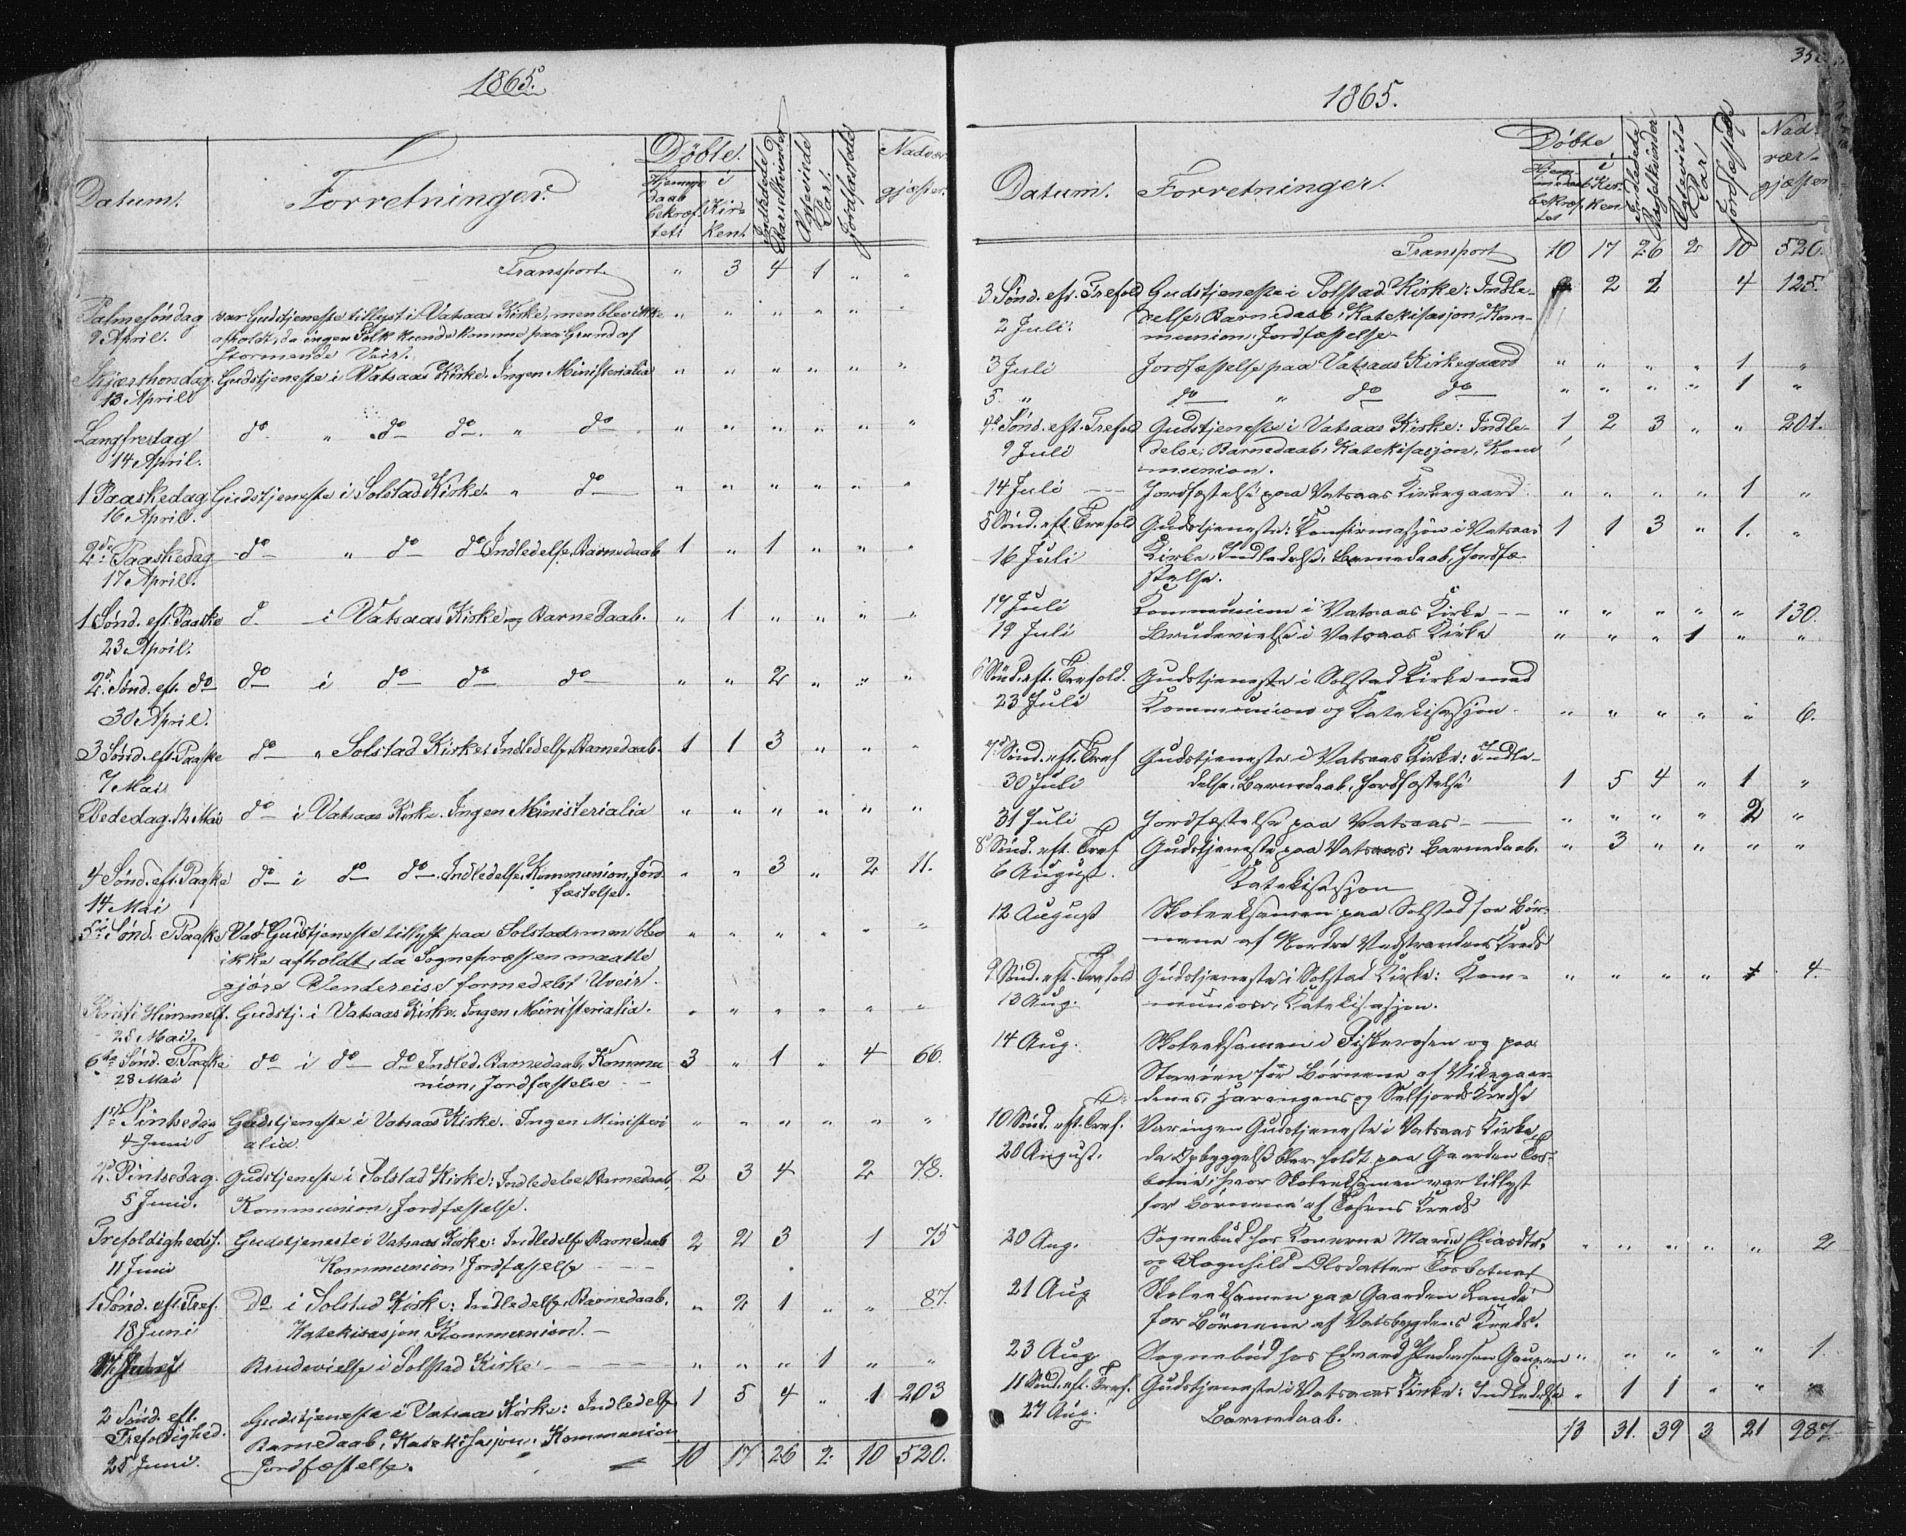 1865.
Datum.
Forretninger.
Döbte.
Hjemme Daab bekræftet
i Kirken.
Indledede Barselkvinder
Ægteviede Par.
Jordfæstede
Nadvergjæster.
Transport " 3 4 1 " "
Palmesøndag var Gudstjeneste tillyst i Vatsaas Kirke, men blev ikke " " " " " "
9 April. afholdt, da ingen Folk kunde komme paa Grund af
stormende Veir.
Skjærthorsdag Gudstjeneste i Vatsaas Kirke. Ingen Ministerialia " " " " " "
13 April
Langfredag do " do do " do " " " " " "
14 April.
1 Paaskedag Gudstjeneste i Solstad Kirke. " do " " " " " "
16 April.
2den Paaskedag do " do do Indledelse, Barnedaab 1 " 1 " " "
17 April.
1 Sönd. eft. Paaske do i Vatsaas Kirke og Barnedaab. " 1 " " " "
23 April.
2. Sönd. eft. do do i do do do " " 2 " " "
30 April.
3 Sönd. eft. Paaske do " Solstad Kirke, Indledelse, Barnedaab. 1 1 3 " " "
7 Mai
Bededag. 12 Mai do i Vatsaas Kirke. Ingen Ministerialia " " " " " "
4 Sönd. eft. Paaske do i do do. Indledelse, Kommunion, Jord " " 3 " 2 11.
14 Mai fæstelse.
5te Sönd. e Paaske Var Gudstjeneste tillyst paa Solstad, men blev " " " " " "
ikke afholdt, da Sognepræsten maatte
gjöre Vendereise formedelst Uveir.
Kristi Himmelf. Gudstj. i Vatsaas Kirke. Ingen Ministerialia. " " " " " "
25 Mai.
6te Sönd. e. Paaske do i do do Indled. Barnedaab, Kommu 3 " 1 " 4 66.
28 Mai nion, Jordfæstelse
1ste Pintsedag Gudstjeneste i Vatsaas Kirke. Ingen Ministeri " " " " " "
4 Juni alia.
2. Pintsedag. Gudstjeneste i Solstad Kirke: Indledelse, Barnedaab, 2 3 4 2 78.
5 Juni. Kommunion, Jordfæstelse.
Trefoldighedsf. Gudstjeneste i Vatsaas Kirke: Indledelse, Barnedaab 2 2 3 1 75
11 Juni Kommunion Jordfæstelse
1 Sönd. eft. Tref. do i Solstad Kirke: Indledelse, Barnedaab, " 2 1 " " 87.
18 Juni Katekisasjon, Kommunion.
Brudevielse i Solstad Kirke " " " 1 " "
2 Sönd. eft. Gudstjeneste i Vatsaas Kirke: Indledelse 1 5 4 " 1 203
Trefoldighed. Barnedaab, Katekisasjon, Kommunion
25 Juni. Jordfæstelse. 10 17 26 2 10 520.
1865.
Datum.
Forretninger.
Döbte.
Hjemmedaab bekræftet
i Kirken
Indledede Barselkvinder
Ægteviede Par
Jordfæstede
Nadværgjæster
Transport 10 17 26 2 10 520.
3 Sönd. eft. Trefold Gudstjeneste i Solstad Kirke: Indle- 2 2 4 125.
2 Juli. delse, Barnedaab, Katekisasjon, Kom-
munion, Jordfæstelse
3 Juli Jordfæstelse paa Vatsaas Kirkegaard " " " " 1 "
5. " do " do do " " " " 1 "
4. Sönd. eft. Trefold Gudstjeneste i Vatsaas Kirke: Indle- 1 2 3 " " 201.
9 Juli delse, Barnedaab, Katekisasjon, Kom
munion.
14 Juli Jordfæstelse paa Vatsaas Kirkegaard " " " " 1 "
5 Sönd. eft. Trefold Gudstjeneste: Konfirmasjon i Vatsaas 1 1 3 " 1. "
16 Juli Kirke, Indledelse, Barnedaab, Jordfæ-
stelse.
17 Juli Kommunion i Vatsaas Kirke " " " " " 130.
19 Juli Brudevielse i Vatsaas Kirke " " " 1 " "
6 Sönd. eft. Trefold. Gudstjeneste i Solstad Kirke med
23 Juli Kommunion og Katekisasjon. " " " " " 6.
7. Sönd. eft. Tref Gudstjeneste i Vatsaas Kirke: Indle-
30 Juli delse, Barnedaab, Jordfæstelse 1 5 4 " 1 "
31 Juli Jordfæstelse paa Vatsaas " " " " 2 "
8 Sönd. eft. Tref Gudstjeneste paa Vatsaas: Barnedaab. " 3 " " " "
6 August. Katekisasjon
12 August Skoleeksamen paa Solstad for Bör-
nene af Nordre Vedstrandens Kreds
9 Sönd. eft. Trefold Gudstjeneste i Solstad Kirke: Kom- " " " " 4.
13 Aug. munion, Katekisasjon.
14 Aug. Skoleeksamen i Fiskerosen og paa
Stavöen for Börnene af Vikegaar-
denes, Harangens og Salfjords Kredse
10 Sönd. eft. Tref. Var ingen Gudstjeneste i Vatsaas Kirke,
20 August. da Opbyggelse blev holdt paa Gaarden Tos-
botnet, hvor Skoleeksamen var tillyst
for Börnene af Tosens Kreds
20 Aug. Sognebud hos Konerne Maria Eliasdtr.
og Ragnhild Olsdatter Tosbotnet " " " " " 2
21 Aug Skoleeksamen paa Gaarden Lande
for Börnene af Vatsbygdens Kreds.
23 Aug Sognebud hos Edvard Pedersen Gaupen " " " " " 1.
11 Sönd. eft. Tref. Gudstjeneste i Vatsaas Kirke: Indledelse " 1 1 " " "
27 Aug. Barnedaab. 13 31. 39 3 21 987